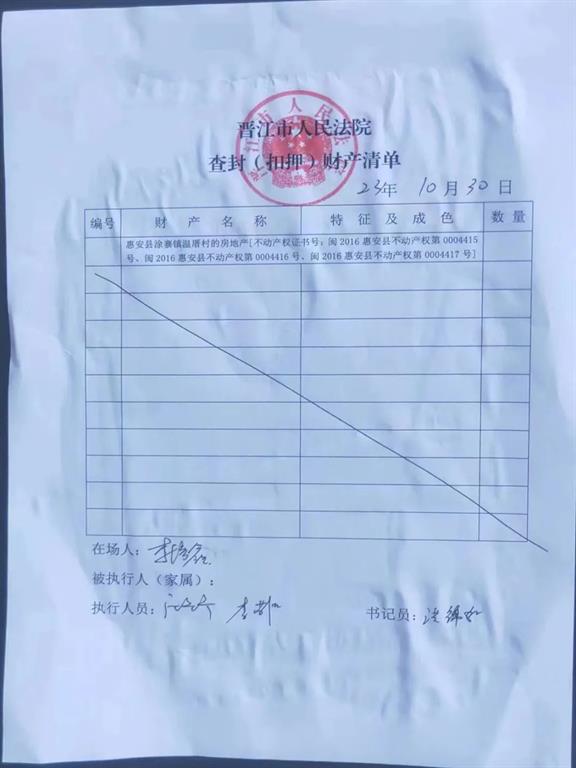 晋江市人民法院
查封（扣押）财产清单
23年 10月 30日
编号 财产名称 特征及成色 数量
惠安县涂寨镇温厝村的房地产[不动产权证书号：闽 2016 惠安县不动产权第 0004415
号、闽 2016 惠安县不动产权第 0004416 号、闽 2016 惠安县不动产权第 0004417 号]
在场人：
被执行人（家属）：
执行人员： 书记员：